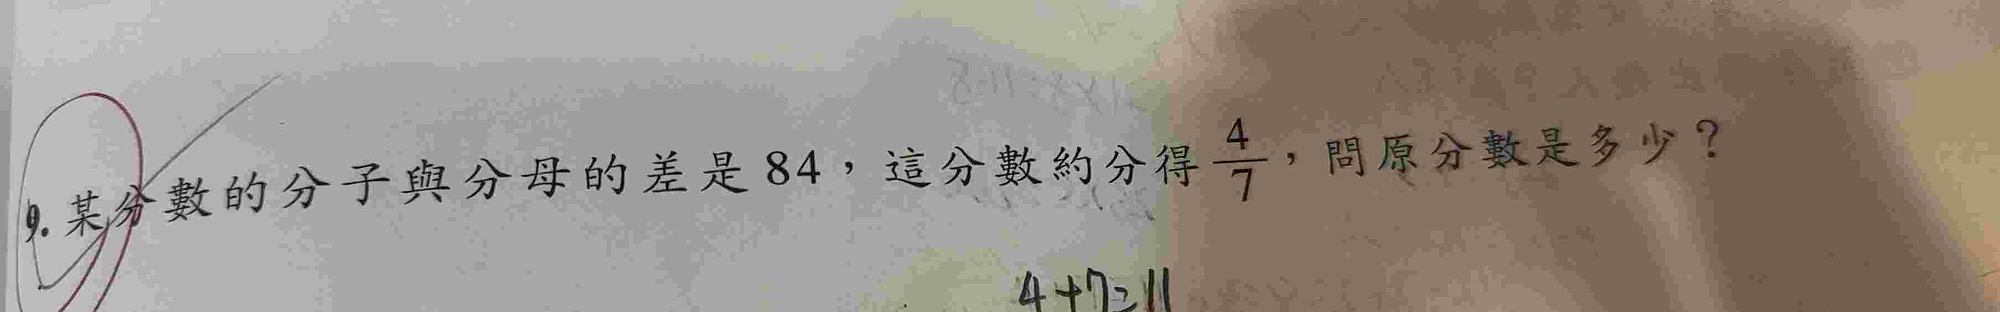 9. 某分數的分子與分母的差是84，這分數約分得 4/7，問原分數是多少？
4+7=11